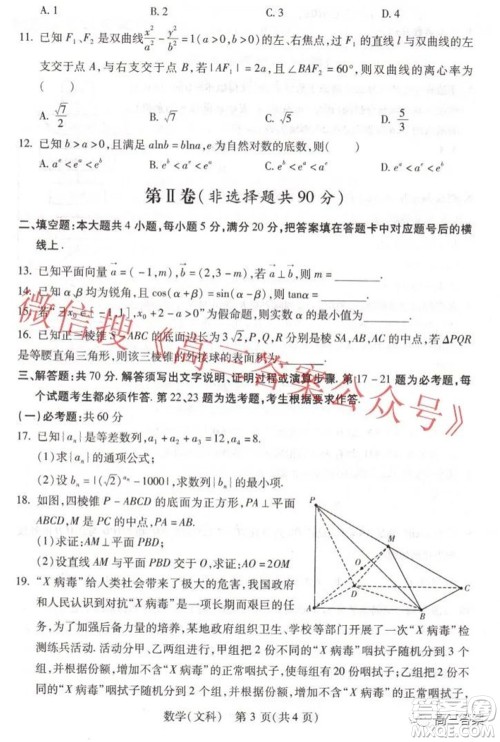 A. 1 B. 2 C. 3 D. 4
11. 已知 F₁、F₂ 是双曲线 x²/a² - y²/b² = 1(a>0,b>0) 的左、右焦点,过 F₁ 的直线 l 与双曲线的左
支交于点 A,与右支交于点 B,若 |AF₁| = 2a,且 ∠BAF₂ = 60°,则双曲线的离心率为
( )
A. √7/2 B. √5 C. √7 D. 5/3
12. 已知 b > a > 0,且满足 alnb = blna,e 为自然对数的底数,则 ( )
第Ⅱ卷(非选择题共 90 分)
二、填空题:本大题共 4 小题,每小题 5 分,满分 20 分,把答案填在答题卡中对应题号后的横
线上.
13. 已知平面向量 a = (-1,m), b = (m-3,2),若 a⊥b,则 m =
14. 已知 α、β 均为锐角,且 cos(α+β) = sin(α-β),则 tanα =
15. 若
16. 已知正三棱锥 S-ABC 的底面边长为 3√2,P,Q,R 分别是棱 SA,AB,AC 的中点,若△PQR
是等腰直角三角形,则该三棱锥的外接球的表面积为
三、解答题:共 70 分. 解答须写出文字说明、证明过程或演算步骤. 第 17-21 题为必考题,每
个试题考生都必须作答. 第 22、23 题为选考题,考生根据要求作答.
(一)必考题:共 60 分
17. 已知{aₙ}是等差数列,a₁ + a₃ = 12,a₄ = 8.
(1)求{aₙ}的通项公式;
(2)设 bₙ = |(√2)^aₙ - 1000|,求数列{bₙ}的最小项.
18. 如图,四棱锥 P-ABCD 的底面为正方形,PA⊥平面
ABCD,M 是 PC 的中点,PA = AB.
(1)求证:AM⊥平面 PBD;
(2)设直线 AM 与平面 PBD 交于 O,求证:AO = 2OM.
P
M
O
D
C
A
B
19. “X 病毒”给人类社会带来了极大的危害,我国政府
和人民认识到对抗“X 病毒”是一项长期而艰巨的任
务,为了加强后备力量的培养,某地政府组织卫生、学校等部门开展了一次“X 病毒”检
测练兵活动. 活动分甲、乙两组进行,甲组把一个含有“X 病毒”的正常咽拭子样本随机
抽取并根据份额,增加不含“X 病毒”的正常咽拭子,使每组有 20 份咽拭子;乙组把一个
含有“X 病毒”的正常咽拭子样本随机抽取并根据份额,增加不含“X 病毒”的正常咽拭
数学(文科) 第 3 页(共 4 页)
微信搜《高三答案公众号》
高三答案